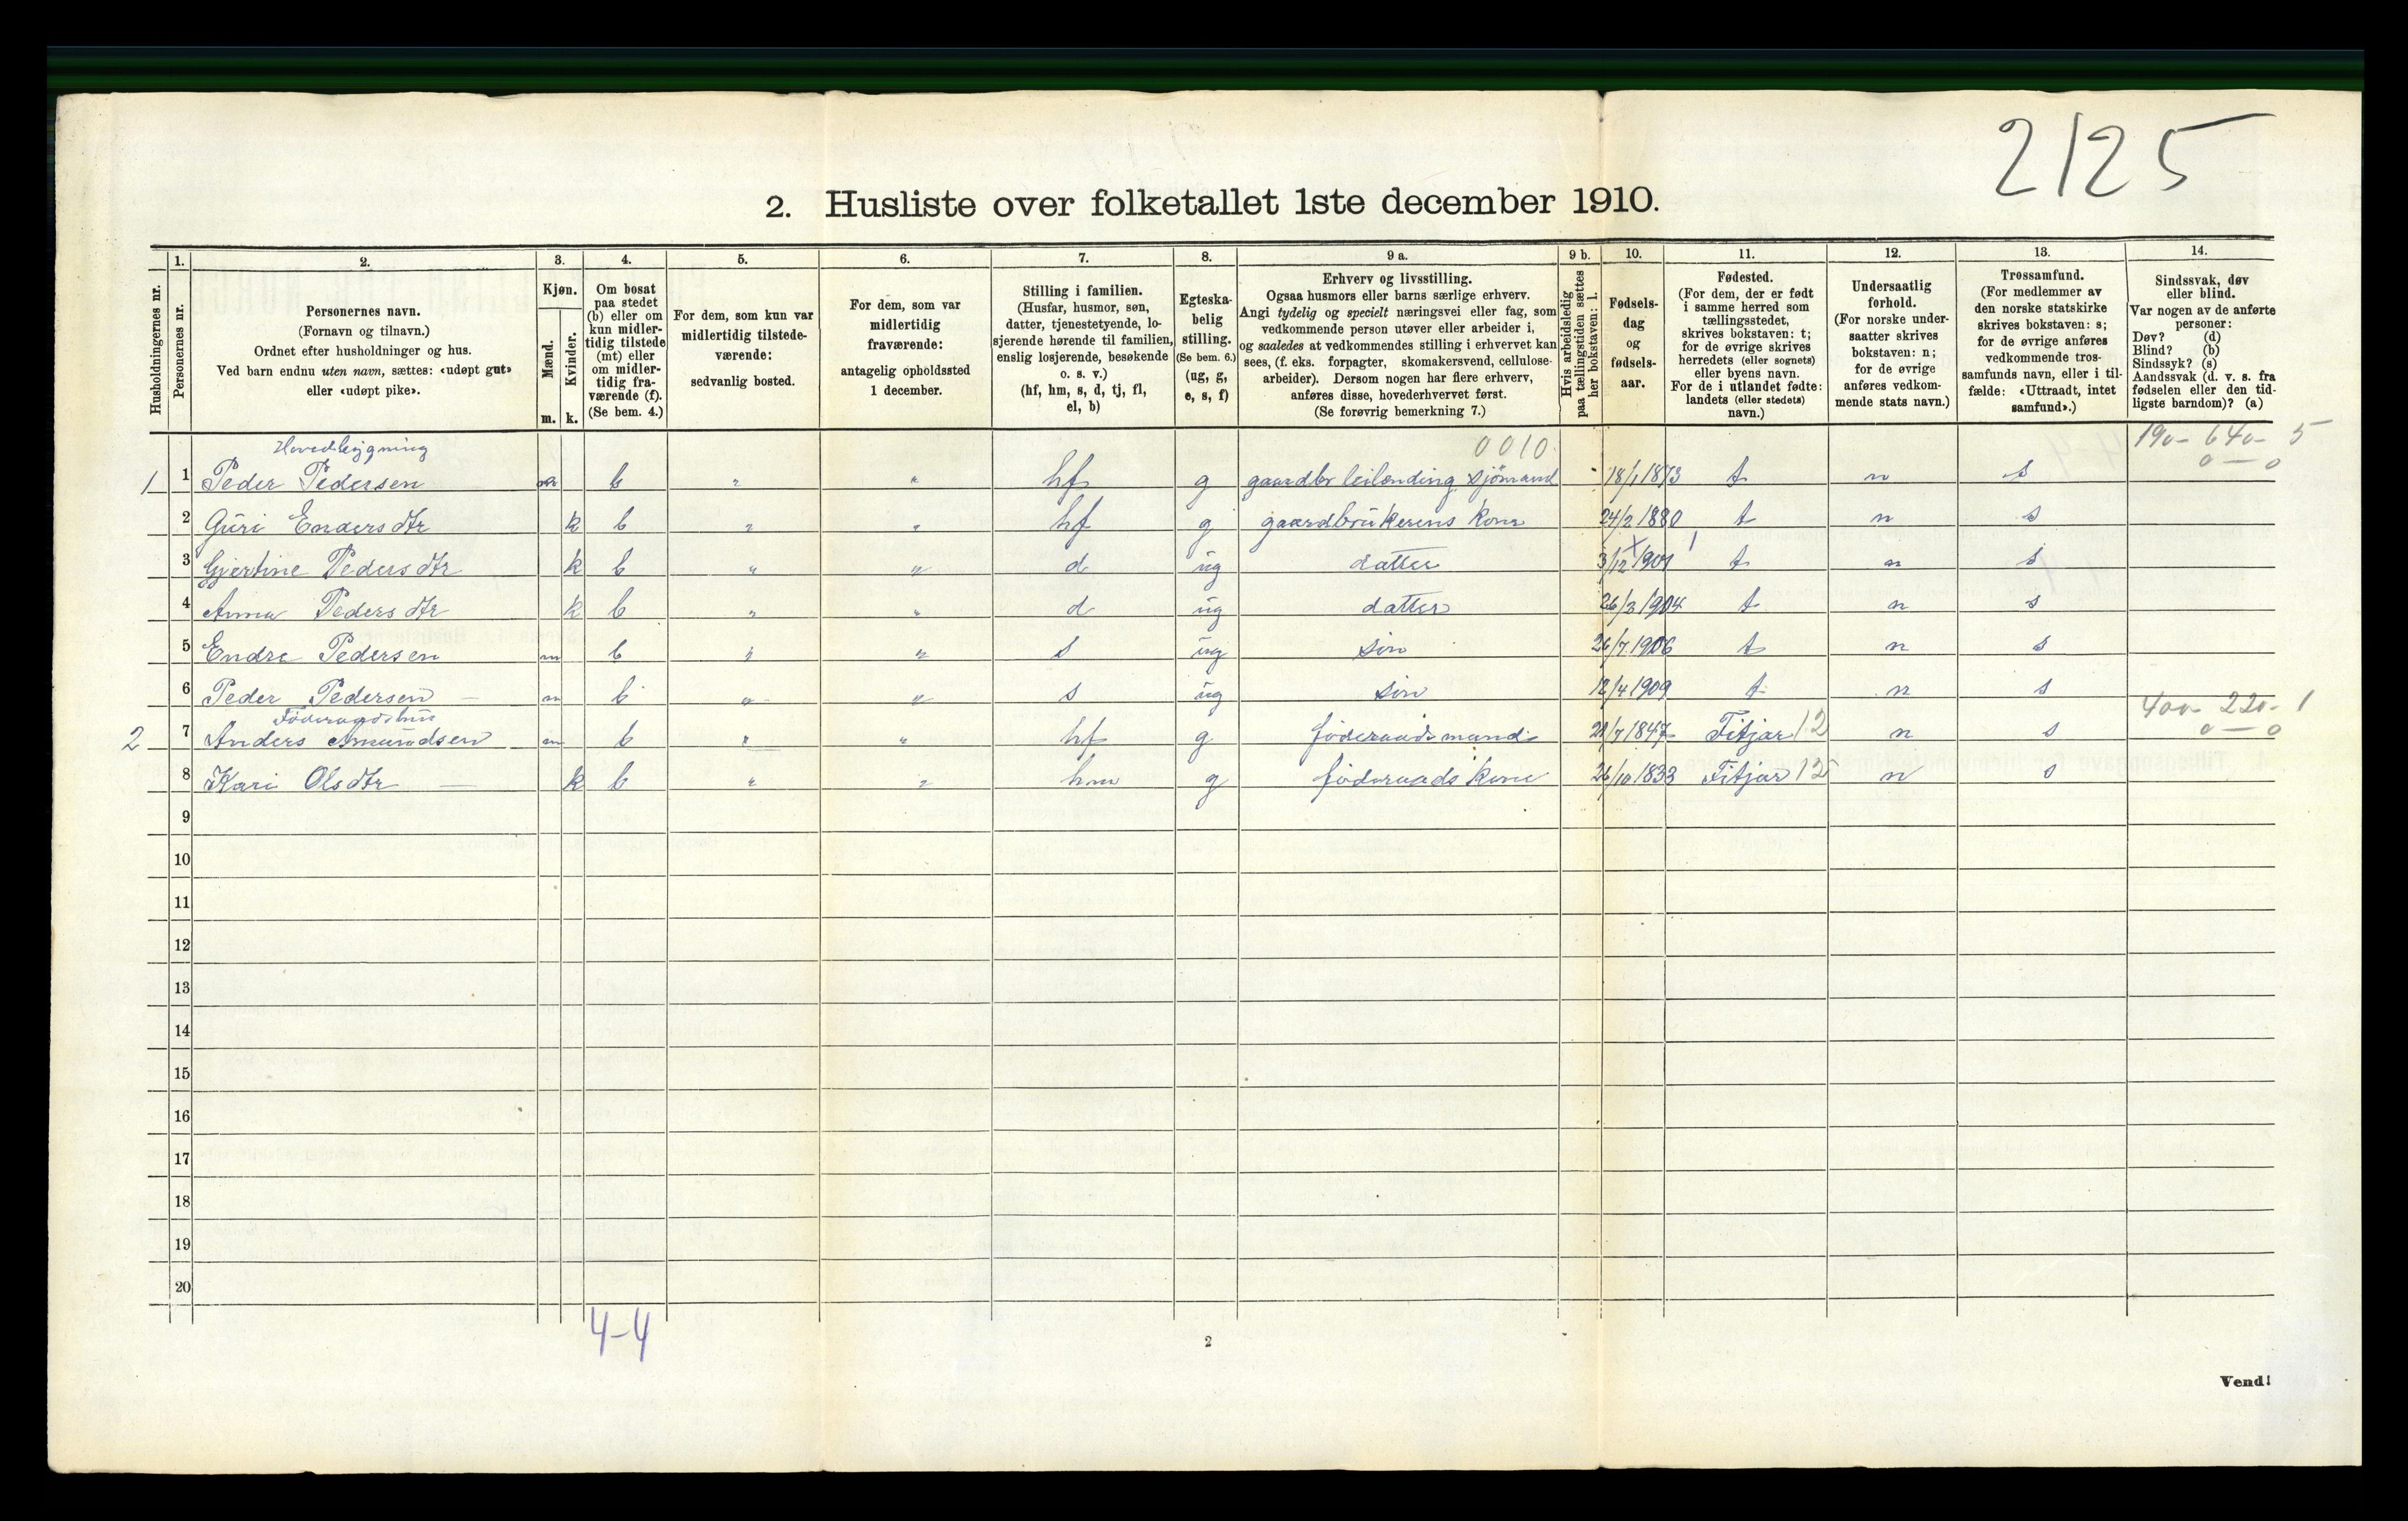 2125
2. Husliste over folketallet 1ste december 1910.
Husholdningernes nr.
1.
Personernes nr.
2.
Personernes navn.
(Fornavn og tilnavn.)
Ordnet efter husholdninger og hus.
Ved barn endnu uten navn, sættes: «udøpt gut»
eller «udøpt pike».
3.
Kjøn.
Mænd.
m.
Kvinder.
k.
4.
Om bosat
paa stedet
(b) eller om
kun midler-
tidig tilstede
(mt) eller
om midler-
tidig fra-
værende (f).
(Se bem. 4.)
5.
For dem, som kun var
midlertidig tilstede-
værende:
sedvanlig bosted.
6.
For dem, som var
midlertidig
fraværende:
antagelig opholdssted
1 december.
7.
Stilling i familien.
(Husfar, husmor, søn,
datter, tjenestetyende, lo-
sjerende hørende til familien,
enslig losjerende, besøkende
o. s. v.)
(hf, hm, s, d, tj, fl,
el, b)
8.
Egteska-
belig
stilling.
(Se bem. 6.)
(ug, g,
e, s, f)
9 a.
Erhverv og livsstilling.
Ogsaa husmors eller barns særlige erhverv.
Angi tydelig og specielt næringsvei eller fag, som
vedkommende person utøver eller arbeider i,
og saaledes at vedkommendes stilling i erhvervet kan
sees, (f. eks. forpagter, skomakersvend, cellulose-
arbeider). Dersom nogen har flere erhverv,
anføres disse, hovederhvervet først.
(Se forøvrig bemerkning 7.)
9 b.
Hvis arbeidsledig
paa tællingstiden sættes
her bokstaven: l.
10.
Fødsels-
dag
og
fødsels-
aar.
11.
Fødested.
(For dem, der er født
i samme herred som
tællingsstedet,
skrives bokstaven: t;
for de øvrige skrives
herredets (eller sognets)
eller byens navn.
For de i utlandet fødte:
landets (eller stedets)
navn.)
12.
Undersaatlig
forhold.
(For norske under-
saatter skrives
bokstaven: n;
for de øvrige
anføres vedkom-
mende stats navn.)
13.
Trossamfund.
(For medlemmer av
den norske statskirke
skrives bokstaven: s;
for de øvrige anføres
vedkommende tros-
samfunds navn, eller i til-
fælde: «Uttraadt, intet
samfund».)
14.
Sindssvak, døv
eller blind.
Var nogen av de anførte
personer:
Døv? (d)
Blind? (b)
Sindssyk? (s)
Aandssvak (d. v. s. fra
fødselen eller den tid-
ligste barndom)? (a)
Hovedbygning 0010 190- 640- 5
0 — 0
1 1 Peder Pedersen m b " " hf g gaardbr leilending sjömand 18/1 1873 t n s
2 Guri Endersdtr k b " " hf g gaardbrukerens kone 24/2 1880 t n s
3 Gjertine Pedersdtr k b " " d ug datter 3/12 1901 t n s
4 Anna Pedersdtr k b " " d ug datter 26/3 1904 t n s
5 Endre Pedersen m b " " s ug sön 26/7 1906 t n s
6 Peder Pedersen — m b " " s ug sön 12/4 1909 t n s
Föderaadshus 400- 220- 1
0 — 0
2 7 Anders Amundsen m b " " hf g föderaadsmand 21/7 1847 Fitjar 12 n s
8 Kari Olsdtr — k b " " hm g föderaads kone 26/10 1833 Fitjar 12 n s
9
10
11
12
13
14
15
16
17
18
19
20
4-4
2
Vend!